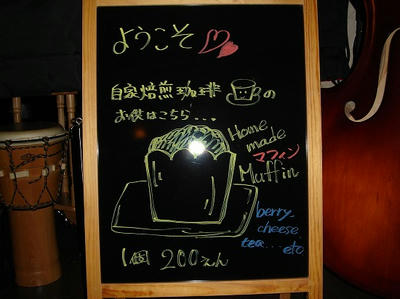 ようこそ
自家焙煎珈琲 の
お供はこちら...
Home
made
マフィン
Muffin
berry
cheese
tea... etc
1個 200えん